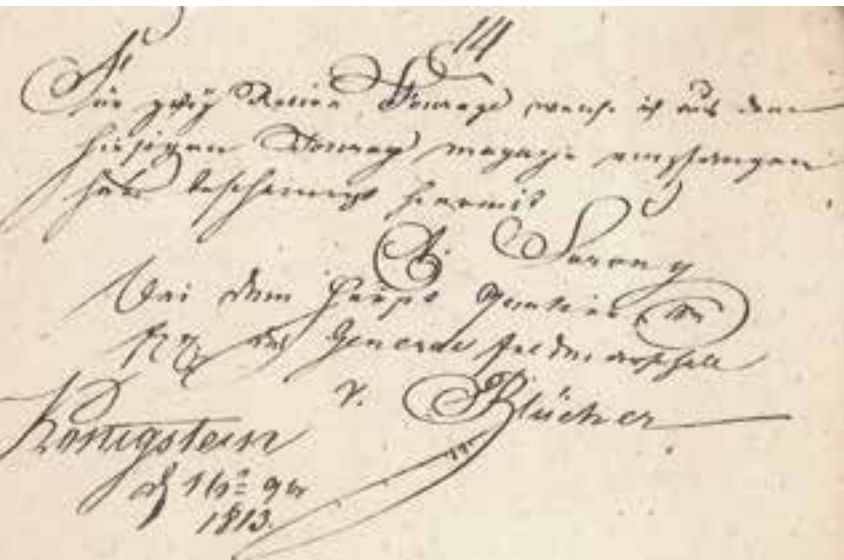 14
Für zwey Ration Fourage welche ich aus dem
hiesigen Fourage magazin empfangen
habe bescheinigt hiermit
Bei dem Haupt Quartier
des General feldmarschall
v. Blücher
Königstein
d 16ⁿ 9br
1813.